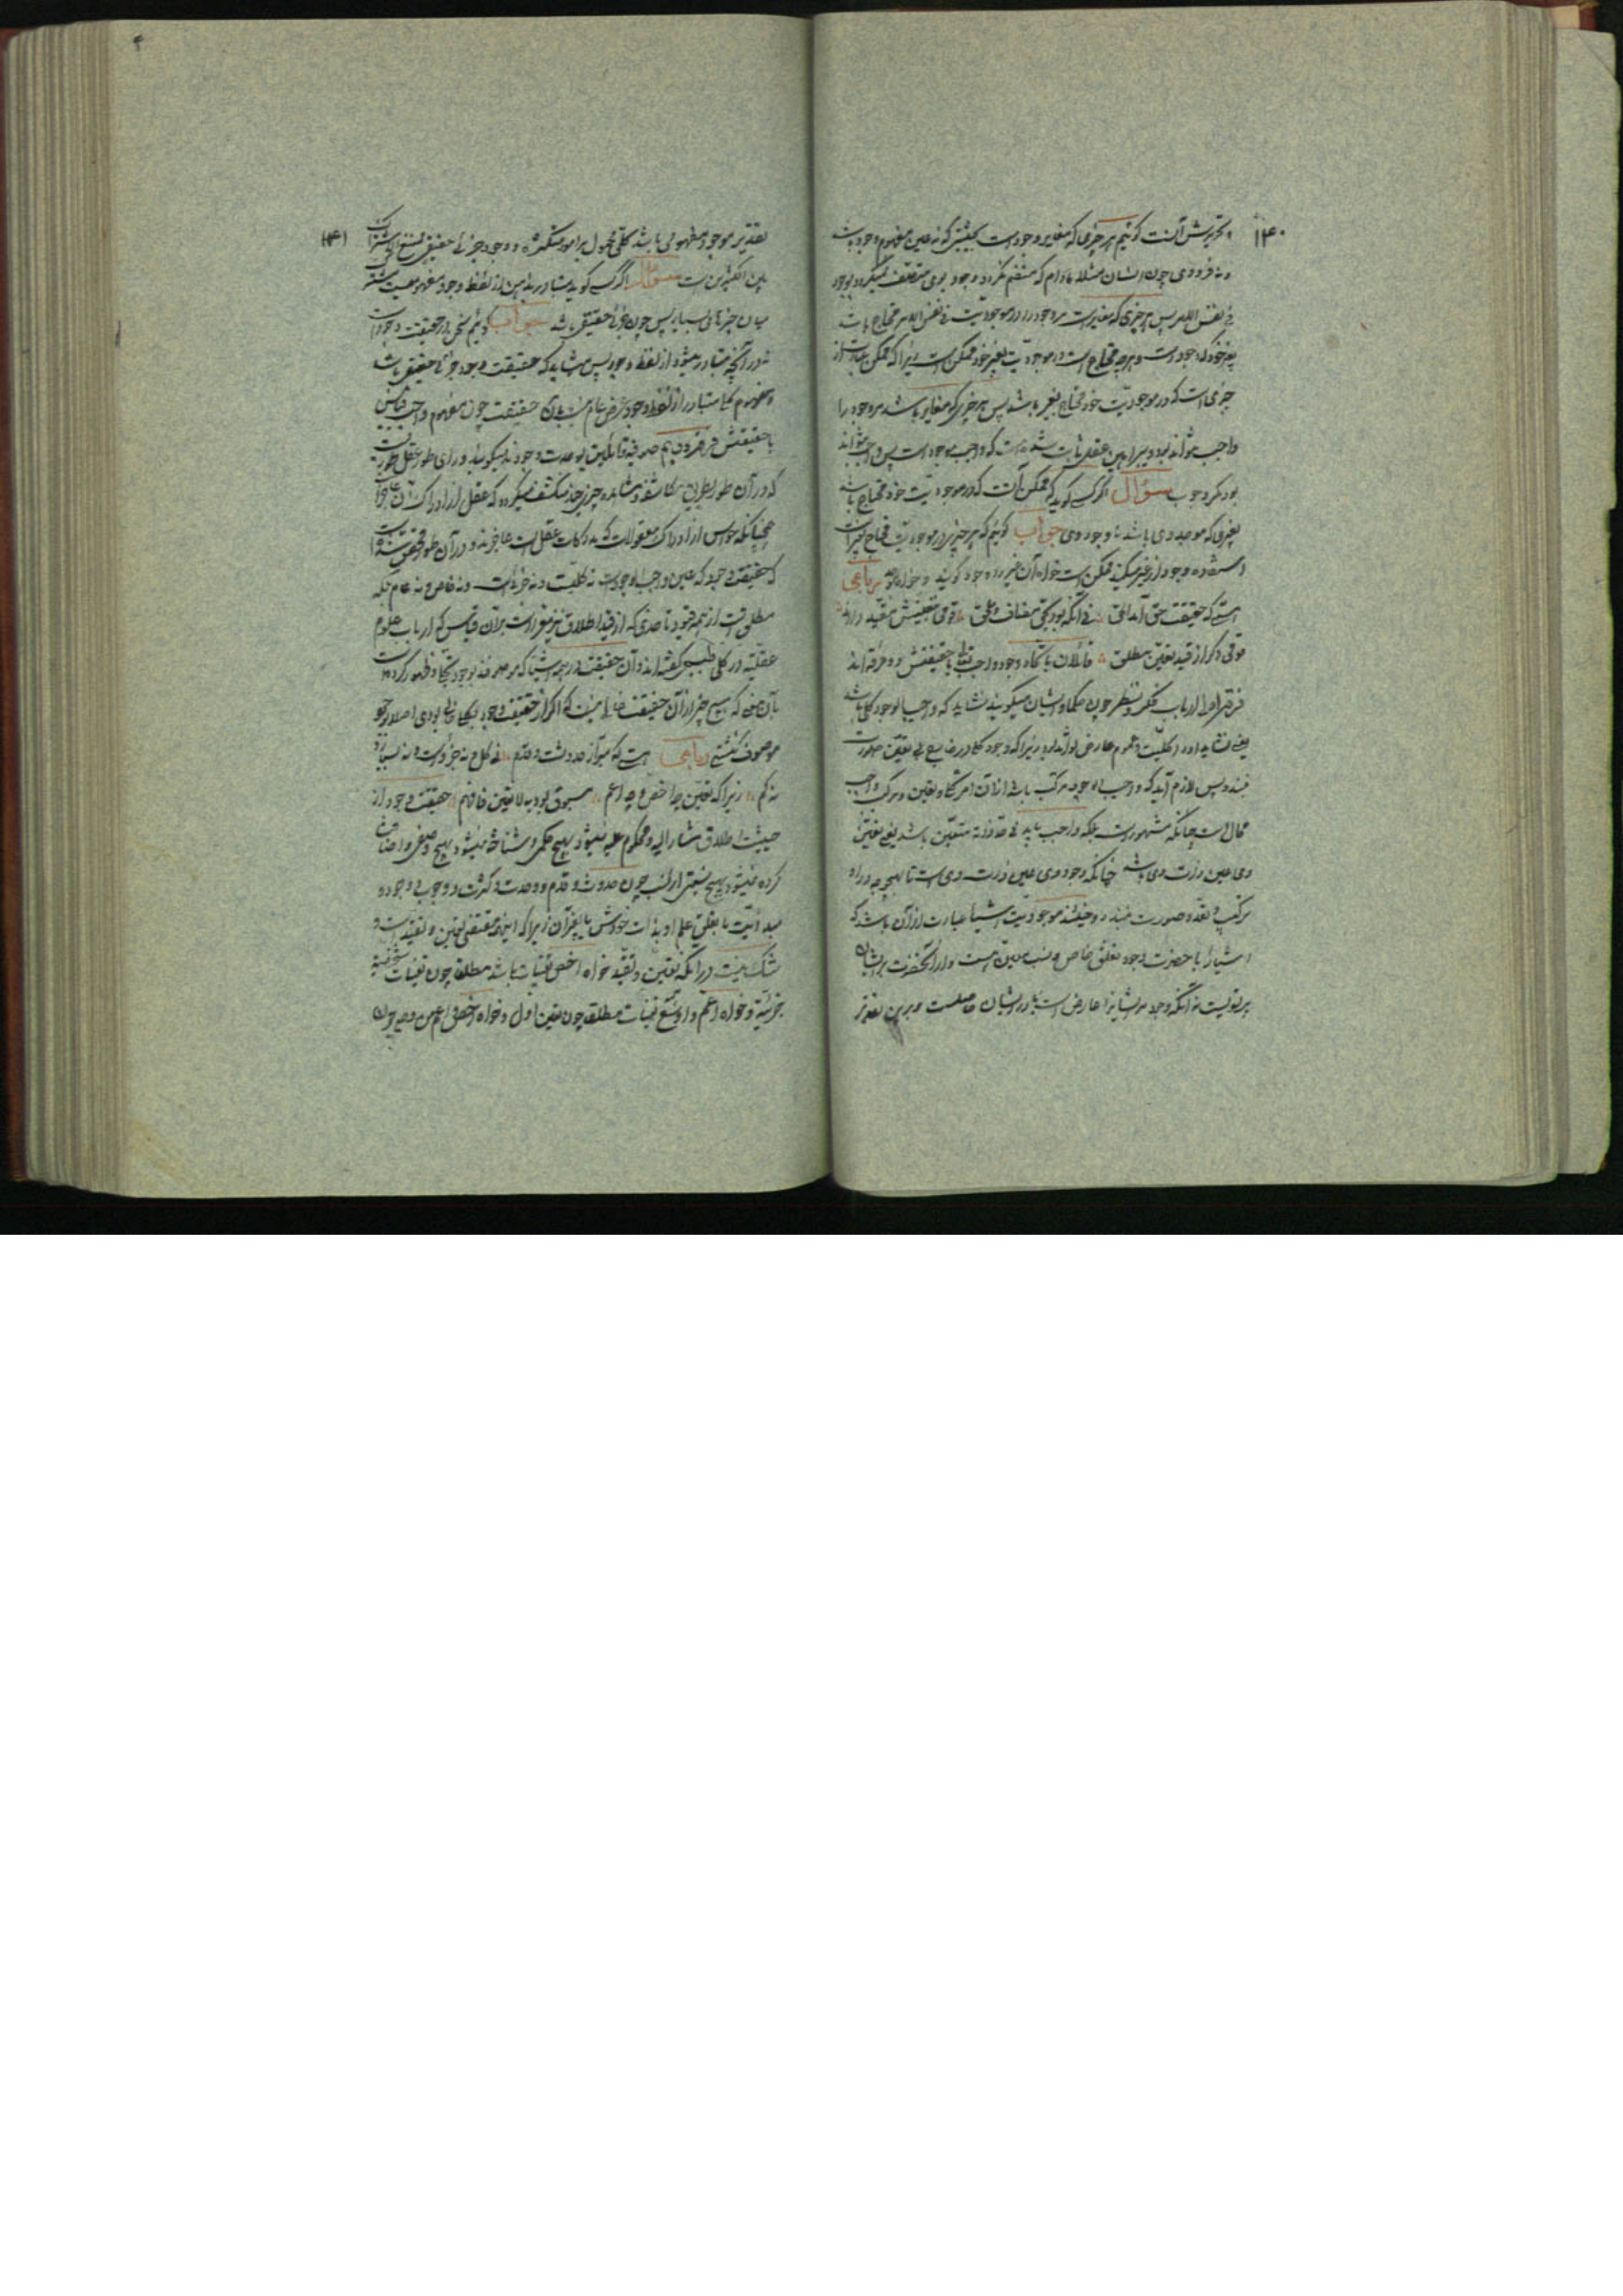 ۱۴۰
و تحریرش آنست کوئیم هر چیزی که مغایر وجودست بحیثیتی که نه عین مفهوم وجود باشد
و نه فرد وی چون انسان مثلا مادام که منضم نگردد وجود بوی متصف نمیگردد بوجود
فی نفس الامر پس هر چیزی که مغایرست مر وجود را در موجودیت فی نفس الامر محتاج باشد
بغیر خود که وجودست و هرچه محتاج است در موجودیت بغیر خود ممکن است زیرا که ممکن عبارت از
چیزی است که در موجودیت خود محتاج بغیر باشد پس هر چیزی که مغایر باشد مر وجود را
واجب نتواند بود و ببراهین عقلی ثابت شده است که واجب موجود است پس واجب نتواند
بود مگر وجود سؤال اگر کسی کوید که ممکن آنست که در موجودیت خود محتاج باشد
بغیری که موجد وی باشد نه وجود وی جواب کوئیم که هر چیزی در موجودیت محتاج بغیرست
استفاده وجود از غیر میکند ممکن است خواه آن غیر را وجود کویند و خواه موجد رباعی
هستی که حقیقت حق آمد الحق نی آنکه بود بحق مضاف و ملحق قومی بتعینش مقید دارند
قومی دکر از قید تعین مطلق قائلان باتحاد وجود واجب تعالی با حقیقتش دو فرقه اند
فرقه اولی ارباب فکر و نظر چون حکما و ایشان میکویند نشاید که واجب الوجود کلی باشد
یعنی نشاید او را کلیت و عموم عارض تواند بود زیرا که وجود کلی در خارج بی تعین صورت
نبندد پس لازم آید که واجب الوجود مرکب باشد از آن امر کلی و تعین و ترکب واجب
محال است چنانکه مشهورست بلکه واجب باید فی حد ذاته متعین باشد یعنی تعین
وی عین ذات وی باشد چنانکه وجود وی عین ذات وی است تا بهیچ وجه در او
ترکیب و تعدد صورت نبندد و حینئذ موجودیت اشیا عبارت از آن باشد که
اشیا را با حضرت وجود تعلق خاص و نسبت معین هست و از آنحضرت بر ایشان
پرتویست نه آنکه وجود مر ایشانرا عارض است یا در ایشان حاصلست و برین تقدیر
۱۴۱
تقدیر موجود مفهومی باشد کلی محمول بر امور متکثره و وجود جزئی حقیقی ممتنع الاشتراک
بین الکثیرین است سؤال اگر کسی کوید متبادر بذهن از لفظ وجود مفهومیست مشترک
میان چیزهای بسیار پس چون جزئی حقیقی باشد جواب کوئیم سخن در حقیقت وجودست
نه در آنچه متبادر میشود از لفظ وجود پس میشاید که حقیقت وجود جزئی حقیقی باشد
و مفهوم کلی متبادر از لفظ وجود عرض عام نسبت بآن حقیقت چون مفهوم واجب بقیاس
با حقیقتش فرقه دویم صوفیه قائلین بوحدت وجودند میکویند ورای طور عقل طوریست
که در آن طور بطریق مکاشفه و مشاهده چیزی چند منکشف میکردد که عقل از ادراک آن عاجزست
همچنانکه حواس از ادراک معقولات که مدرکات عقل است عاجزند و در آن طور محقق شده است
که حقیقت وجود که عین واجب الوجودست نه کلیست و نه جزئیست و نه خاص و نه عام بلکه
مطلق است از همه قیود تا حدی که از قید اطلاق نیز معراست بر آن قیاس که ارباب علوم
عقلیه در کلی طبیعی کفته اند و آن حقیقت در همه اشیا که موصوفند بوجود تجلی و ظهور کرده است
بآن معنی که هیچ چیز از آن حقیقت خالی نیست که اگر از حقیقت وجود بکلی خالی بودی اصلا بوجود
موصوف نکشتی رباعی هستی که مبراز حدوثست و قدم نی کل و نه جزوست و نه بسیار و
نه کم زیرا که تعین چه اخص و چه اعم مسبوق بود به لا تعین فافهم حقیقت وجود از
حیثیت اطلاق مشار الیه و محکوم علیه نمیشود بهیچ حکمی و شناخته نمیشود بهیچ وصفی و اضافت
کرده نمیشود بهیچ نسبتی از نسب چون حدوث و قدم و وحدت و کثرت و وجوب وجود و
مبدأیت یا تعلق علم او بذات خودش یا بغیر آن زیرا که اینهمه مقتضی تعین و تقیدست و
شک نیست در آنکه تعین و تقید خواه اخص تعینات باشد مطلقا چون تعینات شخصیه
جزئیه و خواه اعم و اوسع تعینات مطلقا چون تعین اول و خواه اخص و اعم من وجه چون